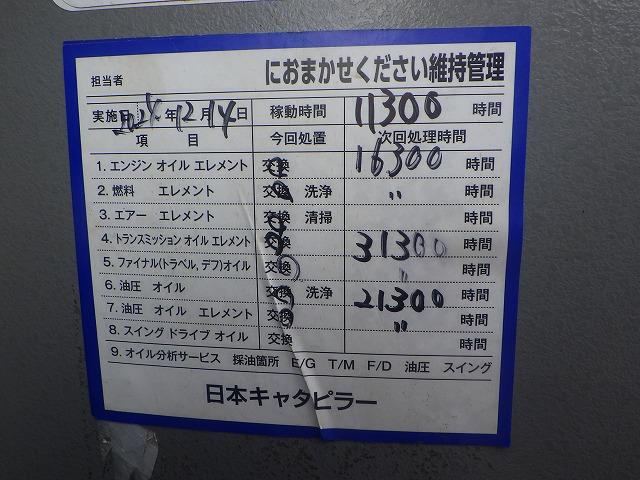 担当者 におまかせください維持管理
実施日 2024年12月14日 稼動時間 11300 時間
項 目 今回処置 次回処理時間
1. エンジン オイル エレメント 交換 16300 時間
2. 燃料 エレメント 交換 洗浄 〃 時間
3. エアー エレメント 交換 清掃 時間
4. トランスミッション オイル エレメント 交換 31300 時間
5. ファイナル(トラベル, デフ)オイル 交換 〃 時間
6. 油圧 オイル 交換 洗浄 21300 時間
7. 油圧 オイル エレメント 交換 〃 時間
8. スイング ドライブ オイル 交換 時間
9. オイル分析サービス 採油箇所 E/G T/M F/D 油圧 スイング
日本キャタピラー